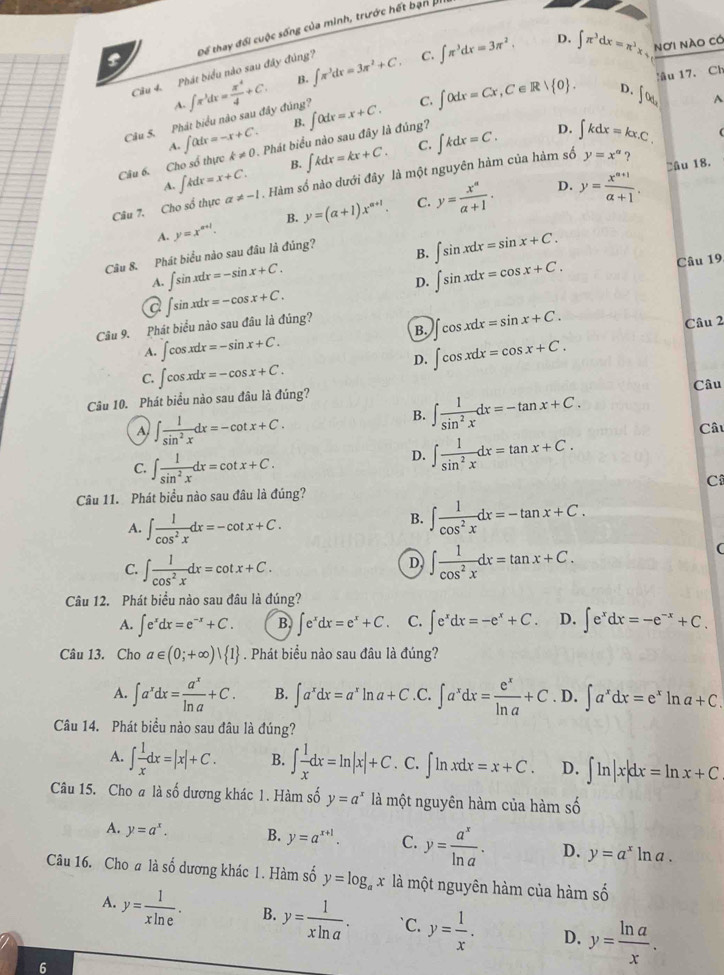 Để thay đổi cuộc sống của mình, trước hết bạn
NƠI NÀO CÓ
Câu 4. Phát biểu nào sau đây đúng?
A. ∫π³dx = π⁴/4 + C. B. ∫π³dx = 3π² + C. C. ∫π³dx = 3π². D. ∫π³dx = π³x +
Câu 5. Phát biểu nào sau đây đúng?
A. ∫0dx = -x + C. B. ∫0dx = x + C. C. ∫0dx = Cx, C ∈ ℝ \ {0}. D. ∫0dx
Câu 6. Cho số thực k ≠ 0. Phát biểu nào sau đây là đúng?
A. ∫kdx = x + C. B. ∫kdx = kx + C. C. ∫kdx = C. D. ∫kdx = kx.C.
Câu 7. Cho số thực α ≠ -1. Hàm số nào dưới đây là một nguyên hàm của hàm số y = x^α ?
A. y = x^(α+1). B. y = (α+1)x^(α+1). C. y = x^α/(α+1). D. y = x^(α+1)/(α+1).
Câu 8. Phát biểu nào sau đâu là đúng?
A. ∫sin xdx = -sin x + C. B. ∫sin xdx = sin x + C.
C. ∫sin xdx = -cos x + C. D. ∫sin xdx = cos x + C.
Câu 9. Phát biểu nào sau đâu là đúng?
A. ∫cos xdx = -sin x + C. B. ∫cos xdx = sin x + C.
C. ∫cos xdx = -cos x + C. D. ∫cos xdx = cos x + C.
Câu 10. Phát biểu nào sau đâu là đúng?
A. ∫1/(sin² x) dx = -cot x + C. B. ∫1/(sin² x) dx = -tan x + C.
C. ∫1/(sin² x) dx = cot x + C. D. ∫1/(sin² x) dx = tan x + C.
Câu 11. Phát biểu nào sau đâu là đúng?
A. ∫1/(cos² x) dx = -cot x + C. B. ∫1/(cos² x) dx = -tan x + C.
C. ∫1/(cos² x) dx = cot x + C. D. ∫1/(cos² x) dx = tan x + C.
Câu 12. Phát biểu nào sau đâu là đúng?
A. ∫e^x dx = e^(-x) + C. B. ∫e^x dx = e^x + C. C. ∫e^x dx = -e^x + C. D. ∫e^x dx = -e^(-x) + C.
Câu 13. Cho a ∈ (0;+∞)\{1}. Phát biểu nào sau đâu là đúng?
A. ∫a^x dx = a^x/ln a + C. B. ∫a^x dx = a^x ln a + C .C. ∫a^x dx = e^x/ln a + C . D. ∫a^x dx = e^x ln a + C.
Câu 14. Phát biểu nào sau đâu là đúng?
A. ∫1/x dx = |x| + C. B. ∫1/x dx = ln|x| + C. C. ∫ln xdx = x + C. D. ∫ln|x|dx = ln x + C.
Câu 15. Cho a là số dương khác 1. Hàm số y = a^x là một nguyên hàm của hàm số
A. y = a^x. B. y = a^(x+1). C. y = a^x/ln a. D. y = a^x ln a.
Câu 16. Cho a là số dương khác 1. Hàm số y = log_a x là một nguyên hàm của hàm số
A. y = 1/(x ln e). B. y = 1/(x ln a). C. y = 1/x. D. y = ln a/x.
6
âu 17. Ch
A
Câu 18.
Câu 19
Câu 2
Câu